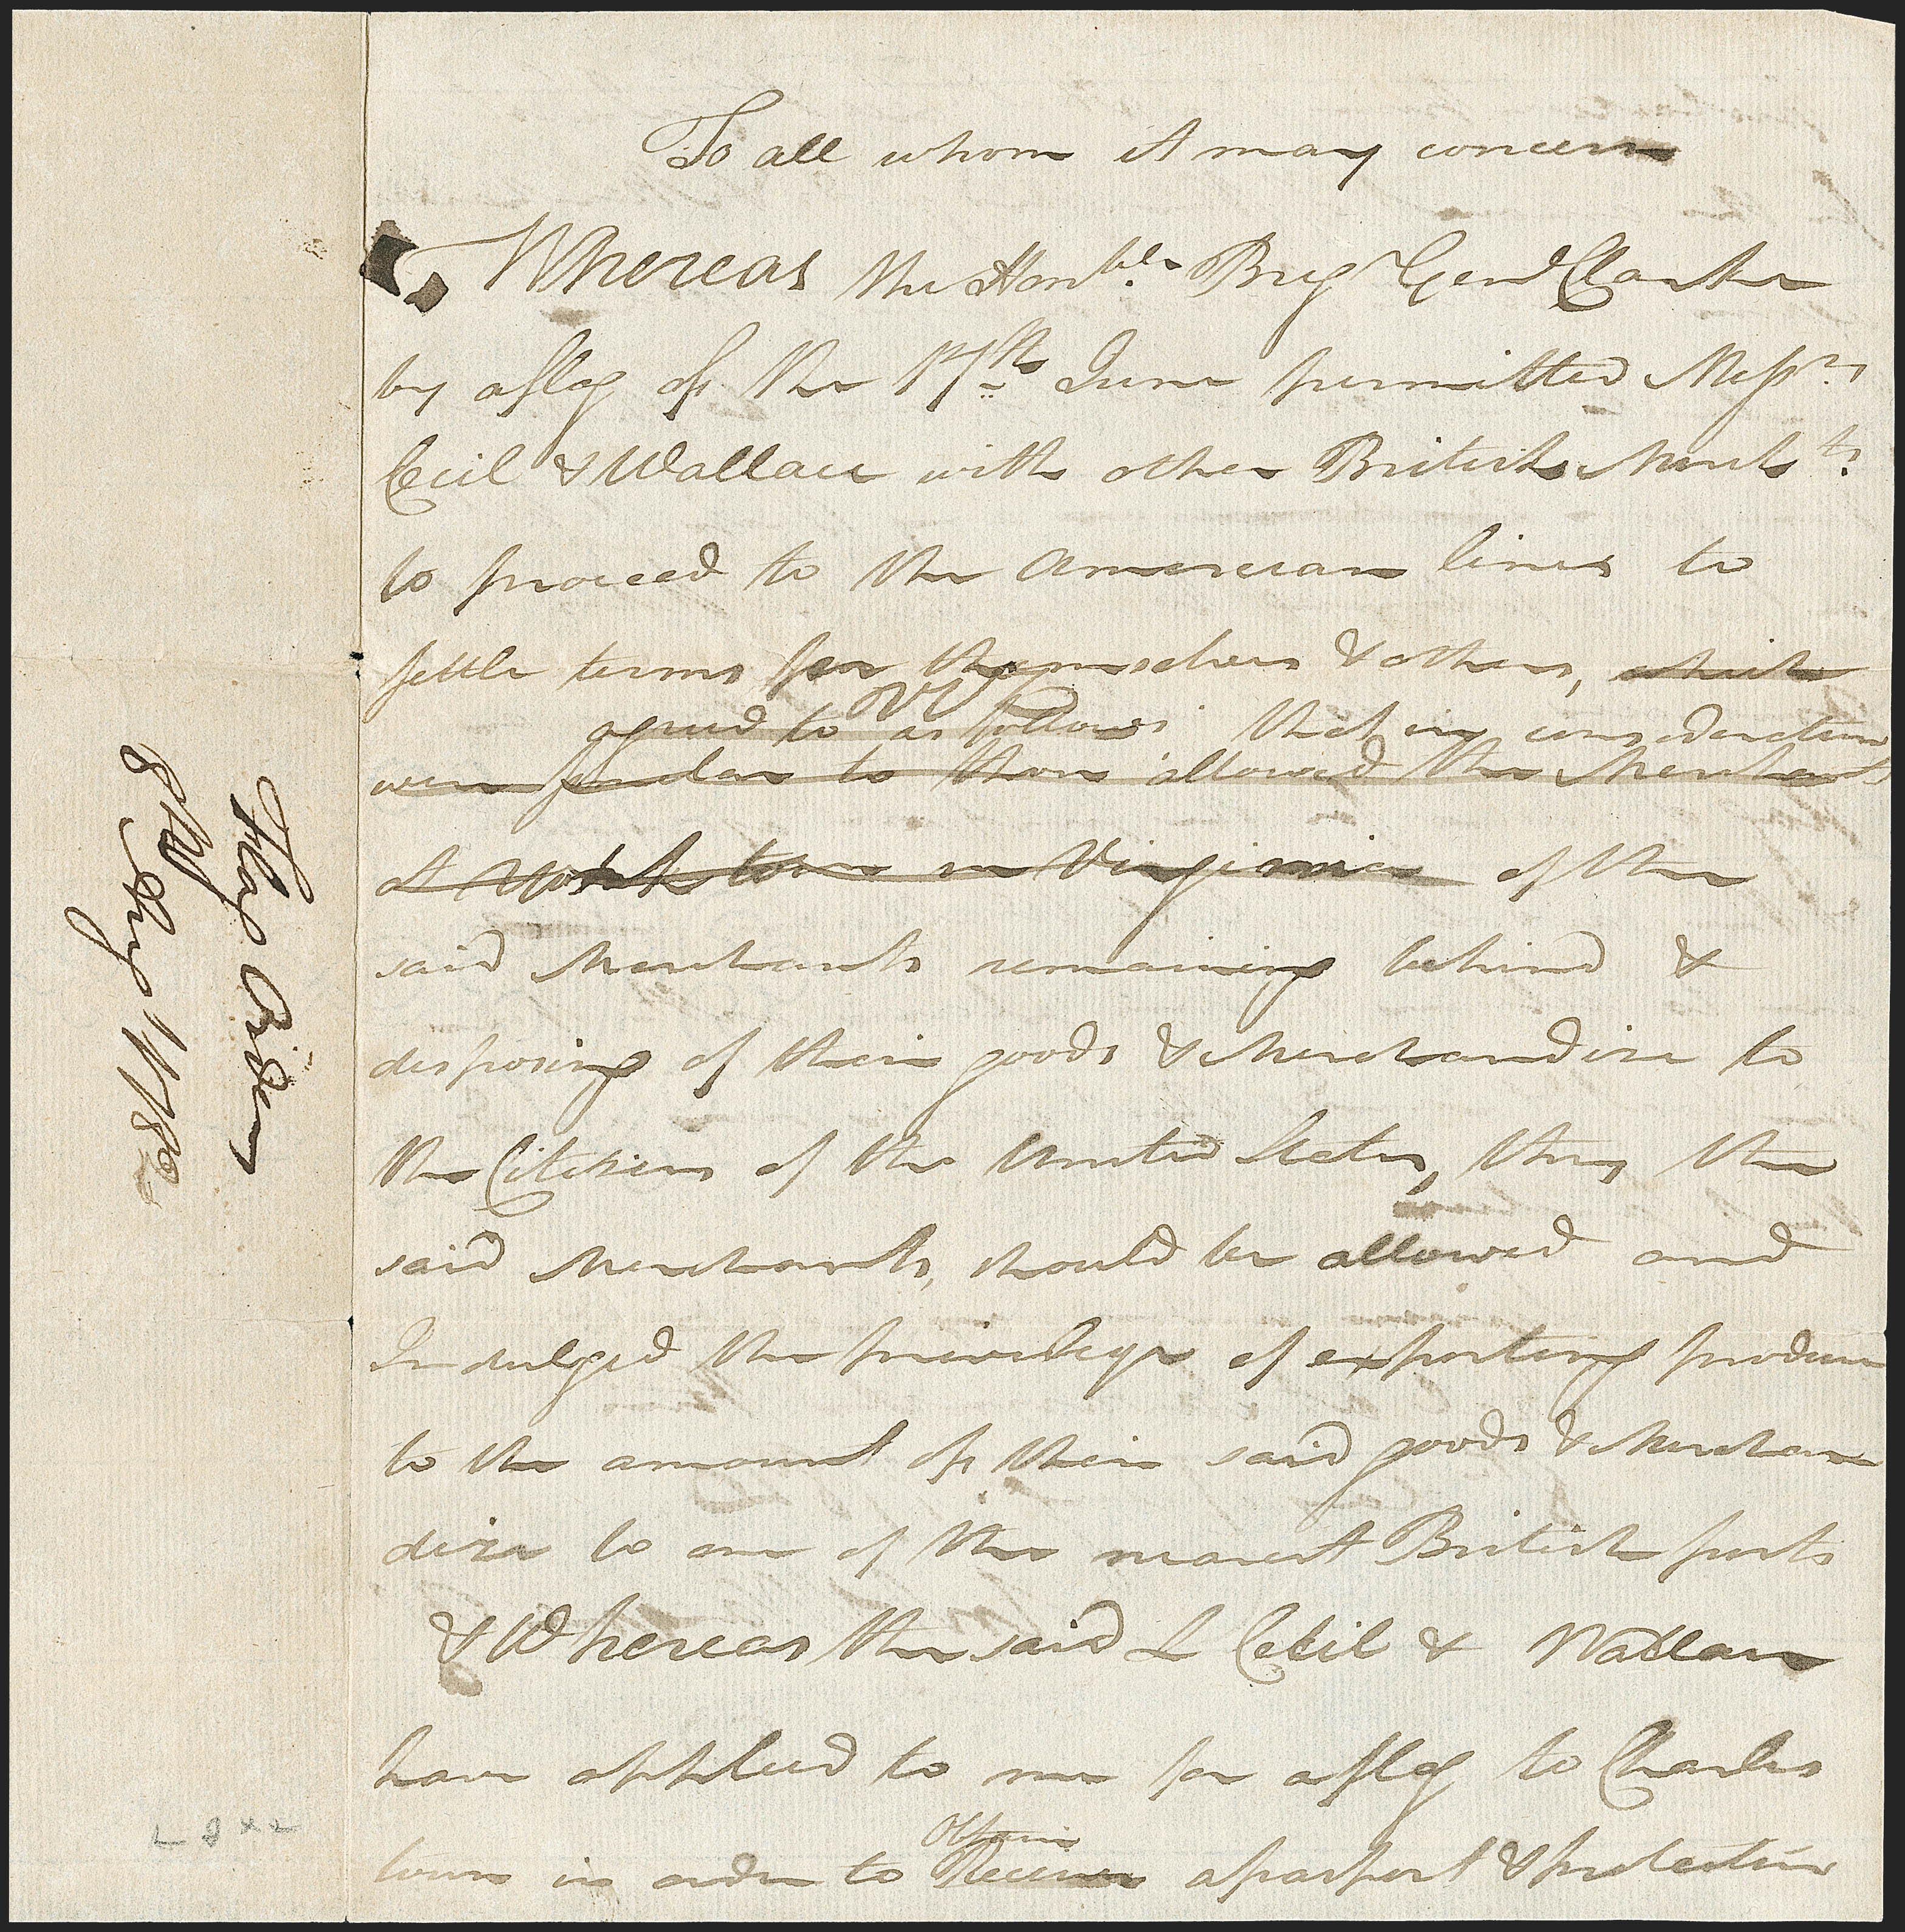 To all whom it may concern
Whereas the Honble. Brig Genl Clarke
by a flag of the 17th June permitted Messrs
Cecil & Wallace with other British Merchts.
to proceed to the American lines to
settle terms for themselves & others, which
agreed to as follows that in consideration
were similar to those allowed the Merchants
at York town in Virginia of the
said Merchants remaining behind &
disposing of their goods & Merchandize to
the Citizens of the United States, they the
said Merchants, should be allowed and
Indulged the priviledge of exporting produce
to the amount of their said goods & Merchan
dize to one of the nearest British ports
& Whereas the said L Cecil & Wallace
have applied to me for a flag to Charles
Obtain
town in order to Receive a passport & protection
Flag Orders
8th Augt 1782